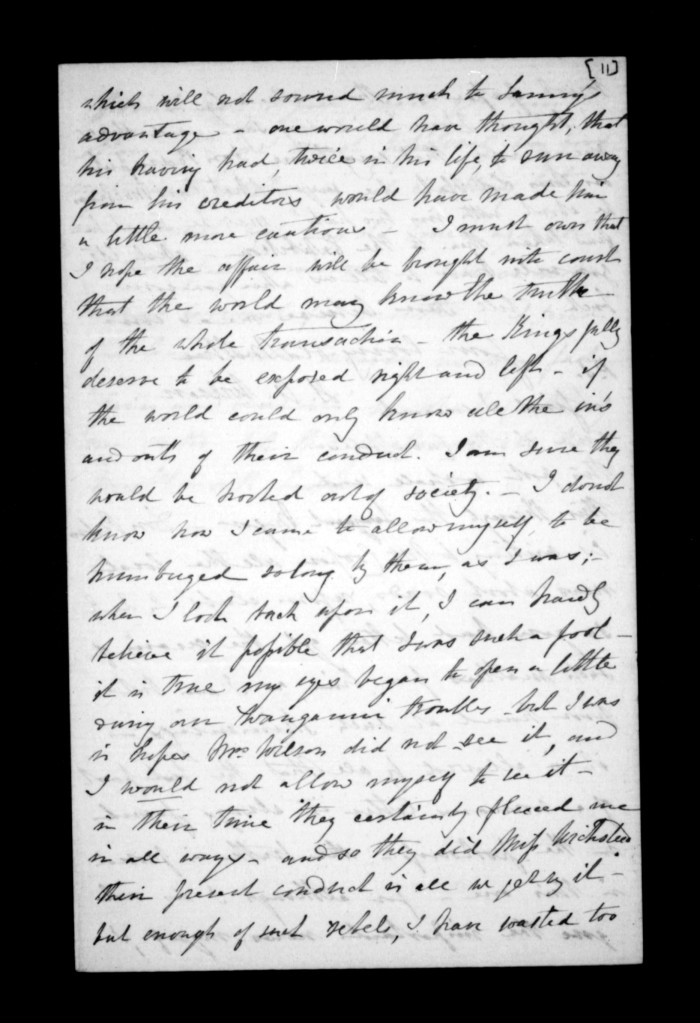 [11]
which will not sound much to Sammy's
advantage - one would have thought, that
his having had, twice in his life, to run away
from his creditors would have made him
a little more cautious - I must own that
I hope the affair will be brought into court
that the world may know the truth
of the whole transaction - the Kings fully
deserve to be exposed right and left - if
the world could only know all the in's
and outs of their conduct. I am sure they
would be hooted out of society. - I don't
know how I came to allow myself, to be
humbuged so long by them, as I was; -
when I look back upon it, I can hardly
believe it possible that I was such a fool -
it is true my eyes began to open a little
during our Wanganui troubles but I was
in hopes Mrs Wilson did not see it, and
I would not allow myself to see it -
in their time they certainly fleeced me
in all ways - and so they did Miss
their present conduct is all we get by it -
but enough of such rebels, I have wasted too